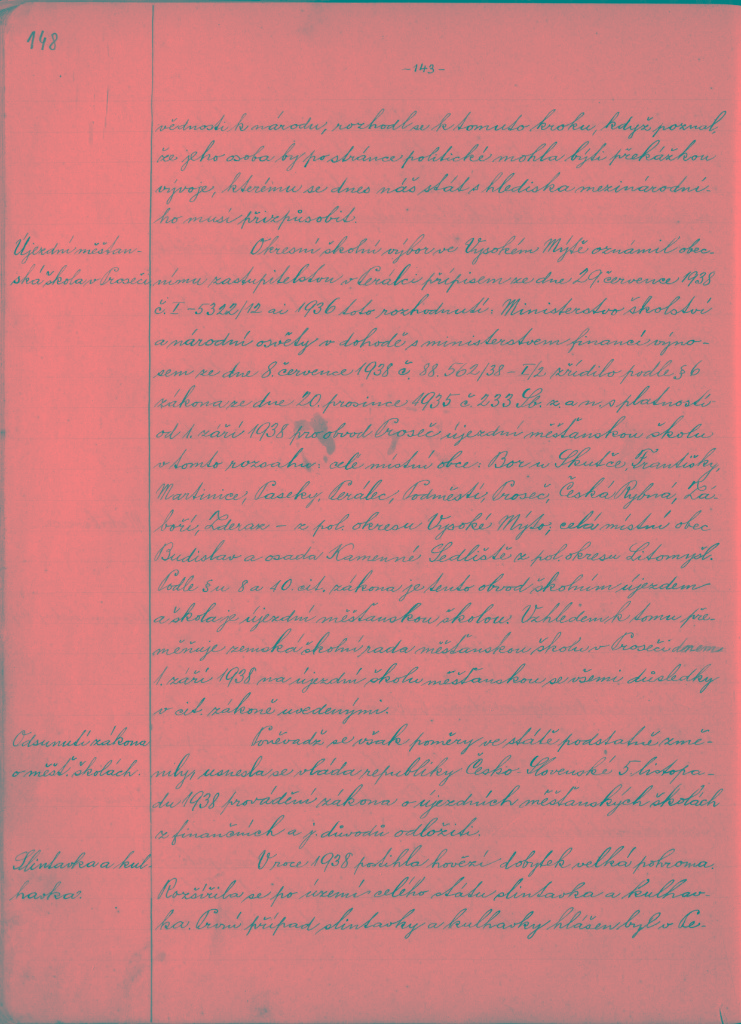 148
- 149 -
vědnosti k národu, rozhodl se k tomuto kroku, když poznal,
že jeho osoba by po stránce politické mohla býti překážkou
vývoje, kterému se dnes náš stát s hlediska mezinárodní-
ho musí přizpůsobit.
Újezdní měšťan-
ská škola v Proseči
Okresní školní výbor ve Vysokém Mýtě oznámil obec-
nímu zastupitelstvu v Perálci přípisem ze dne 29. července 1938
č. I-5322/12 ai 1936 toto rozhodnutí: Ministerstvo školství
a národní osvěty v dohodě s ministerstvem financí výno-
sem ze dne 8. července 1938 č. 88.562/38-I/2 zřídilo podle § 6
zákona ze dne 20. prosince 1935 č. 233 Sb. z. a n. s platností
od 1. září 1938 pro obvod Proseč újezdní měšťanskou školu
v tomto rozsahu: celé místní obce: Bor u Skutče, Františky,
Martinice, Paseky, Perálec, Podměstí, Proseč, Česká Rybná, Zá-
boří, Zderaz - z pol. okresu Vysoké Mýto; celá místní obec
Budislav a osada Kamenné Sedliště z pol. okresu Litomyšl.
Podle § u 8 a 10 cit. zákona je tento obvod školním újezdem
a škola je újezdní měšťanskou školou. Vzhledem k tomu pře-
měňuje zemská školní rada měšťanskou školu v Proseči dnem
1. září 1938 na újezdní školu měšťanskou se všemi důsledky
v cit. zákoně uvedenými.
Odsunutí zákona
o měšť. školách.
Poněvadž se však poměry ve státě podstatně změ-
nily, usnesla se vláda republiky Česko-Slovenské 5. listopa-
du 1938 provádění zákona o újezdních měšťanských školách
z finančních a j. důvodů odložiti.
Slintavka a kul-
havka.
V roce 1938 postihla hovězí dobytek velká pohroma.
Rozšířila se po území celého státu slintavka a kulhav-
ka. První případ slintavky a kulhavky hlášen byl v Pe-